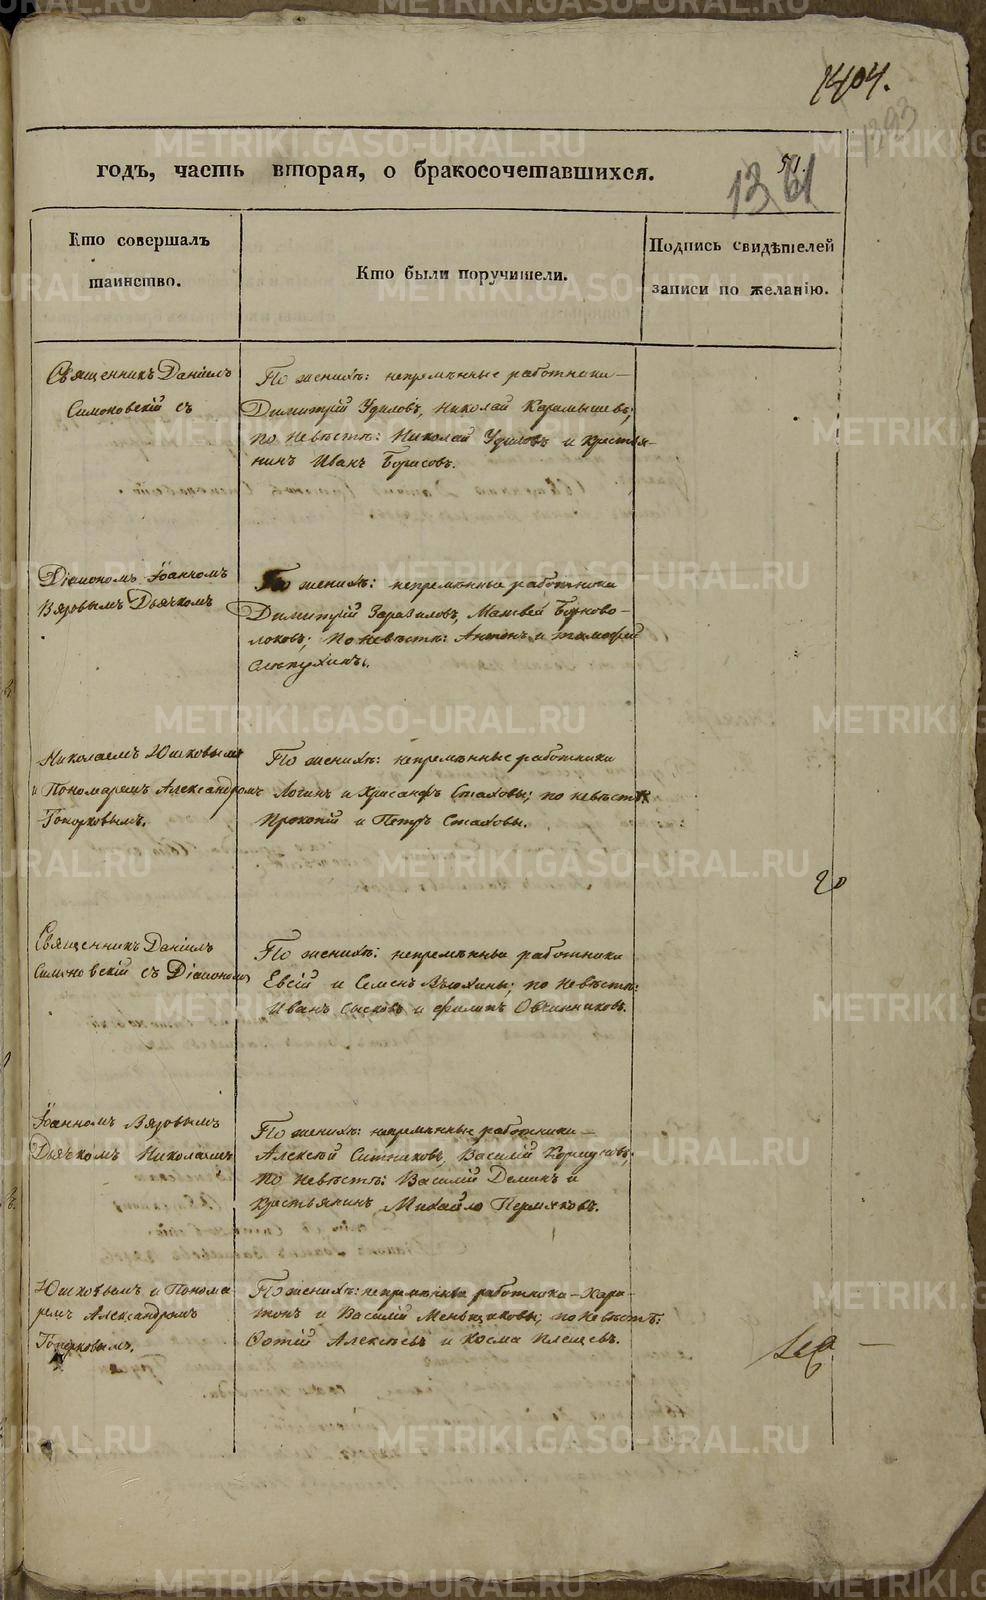 1404.
1393
годъ, часть вторая, о бракосочетавшихся.
51.
1361
Кто совершалъ
таинство.
Кто были поручители.
Подпись свидѣтелей
записи по желанію.
Священникъ Даніилъ
Симоновскій съ
По женихѣ: непремѣнные работники
Димитрій Удиловъ, Николай Карамышевъ;
по невѣстѣ: Николай Удиловъ и крестья-
нинъ Иванъ Борисовъ.
Діакономъ Іоанномъ
Вяровымъ Дьячкомъ
По женихѣ: непремѣнные работники
Димитрій Заразиловъ, Матвей Боково-
локовъ; по невѣстѣ: Антонъ и Тимофей
Слепухинъ.
Николаемъ Юшковымъ
и Пономаремъ Александромъ
Топорковымъ.
По женихѣ: непремѣнные работники
Логинъ и Хрисанфъ Стаховы; по невѣстѣ
Прокопій и Петръ Стаховы.
20
Священникъ Даніилъ
Симоновскій съ Діакономъ
По женихѣ: непремѣнные работники
Евсій и Семенъ Вьюхины; по невѣстѣ:
Иванъ Сысковъ и Филипъ Овчинниковъ.
Іоанномъ Вяровымъ
Дьячкомъ Николаемъ
По женихѣ: непремѣнные работники
Алексѣй Ситниковъ, Василій Кормуновъ;
по невѣстѣ: Василій Деминъ и
крестьянинъ Михайло Пермяковъ.
Юшковымъ и Понома
ремъ Александромъ
Топорковымъ.
По женихѣ: непремѣнные работники Хари-
тонъ и Василій Меньщиковы; по невѣстѣ:
Фотій Алексѣевъ и Косма Плещевъ.
METRIKI.GASO-URAL.RU